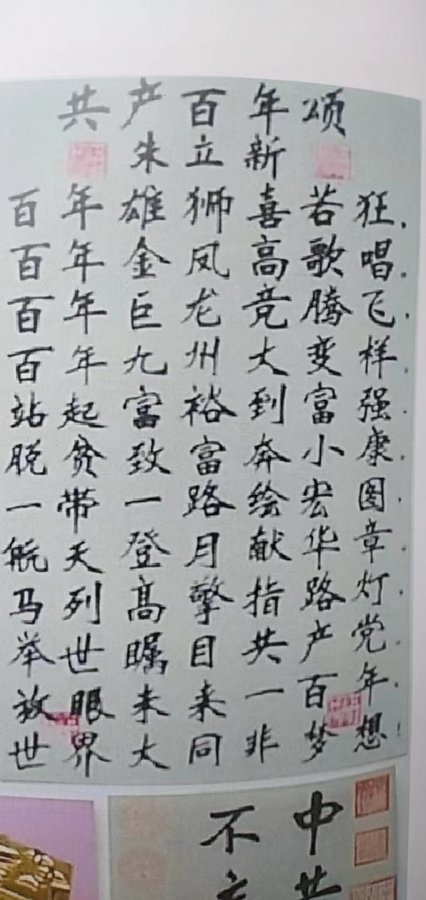 共产百年颂
朱立新
百年雄狮喜若狂,
百年金凤高歌唱.
百年巨龙竞腾飞,
百年九州大变样.
站起富裕到富强,
脱贫致富奔小康.
一带一路绘宏图,
航天登月献华章.
马列高擎指路灯,
举世瞩目共产党.
放眼未来一百年,
世界大同非梦想!
中共
不